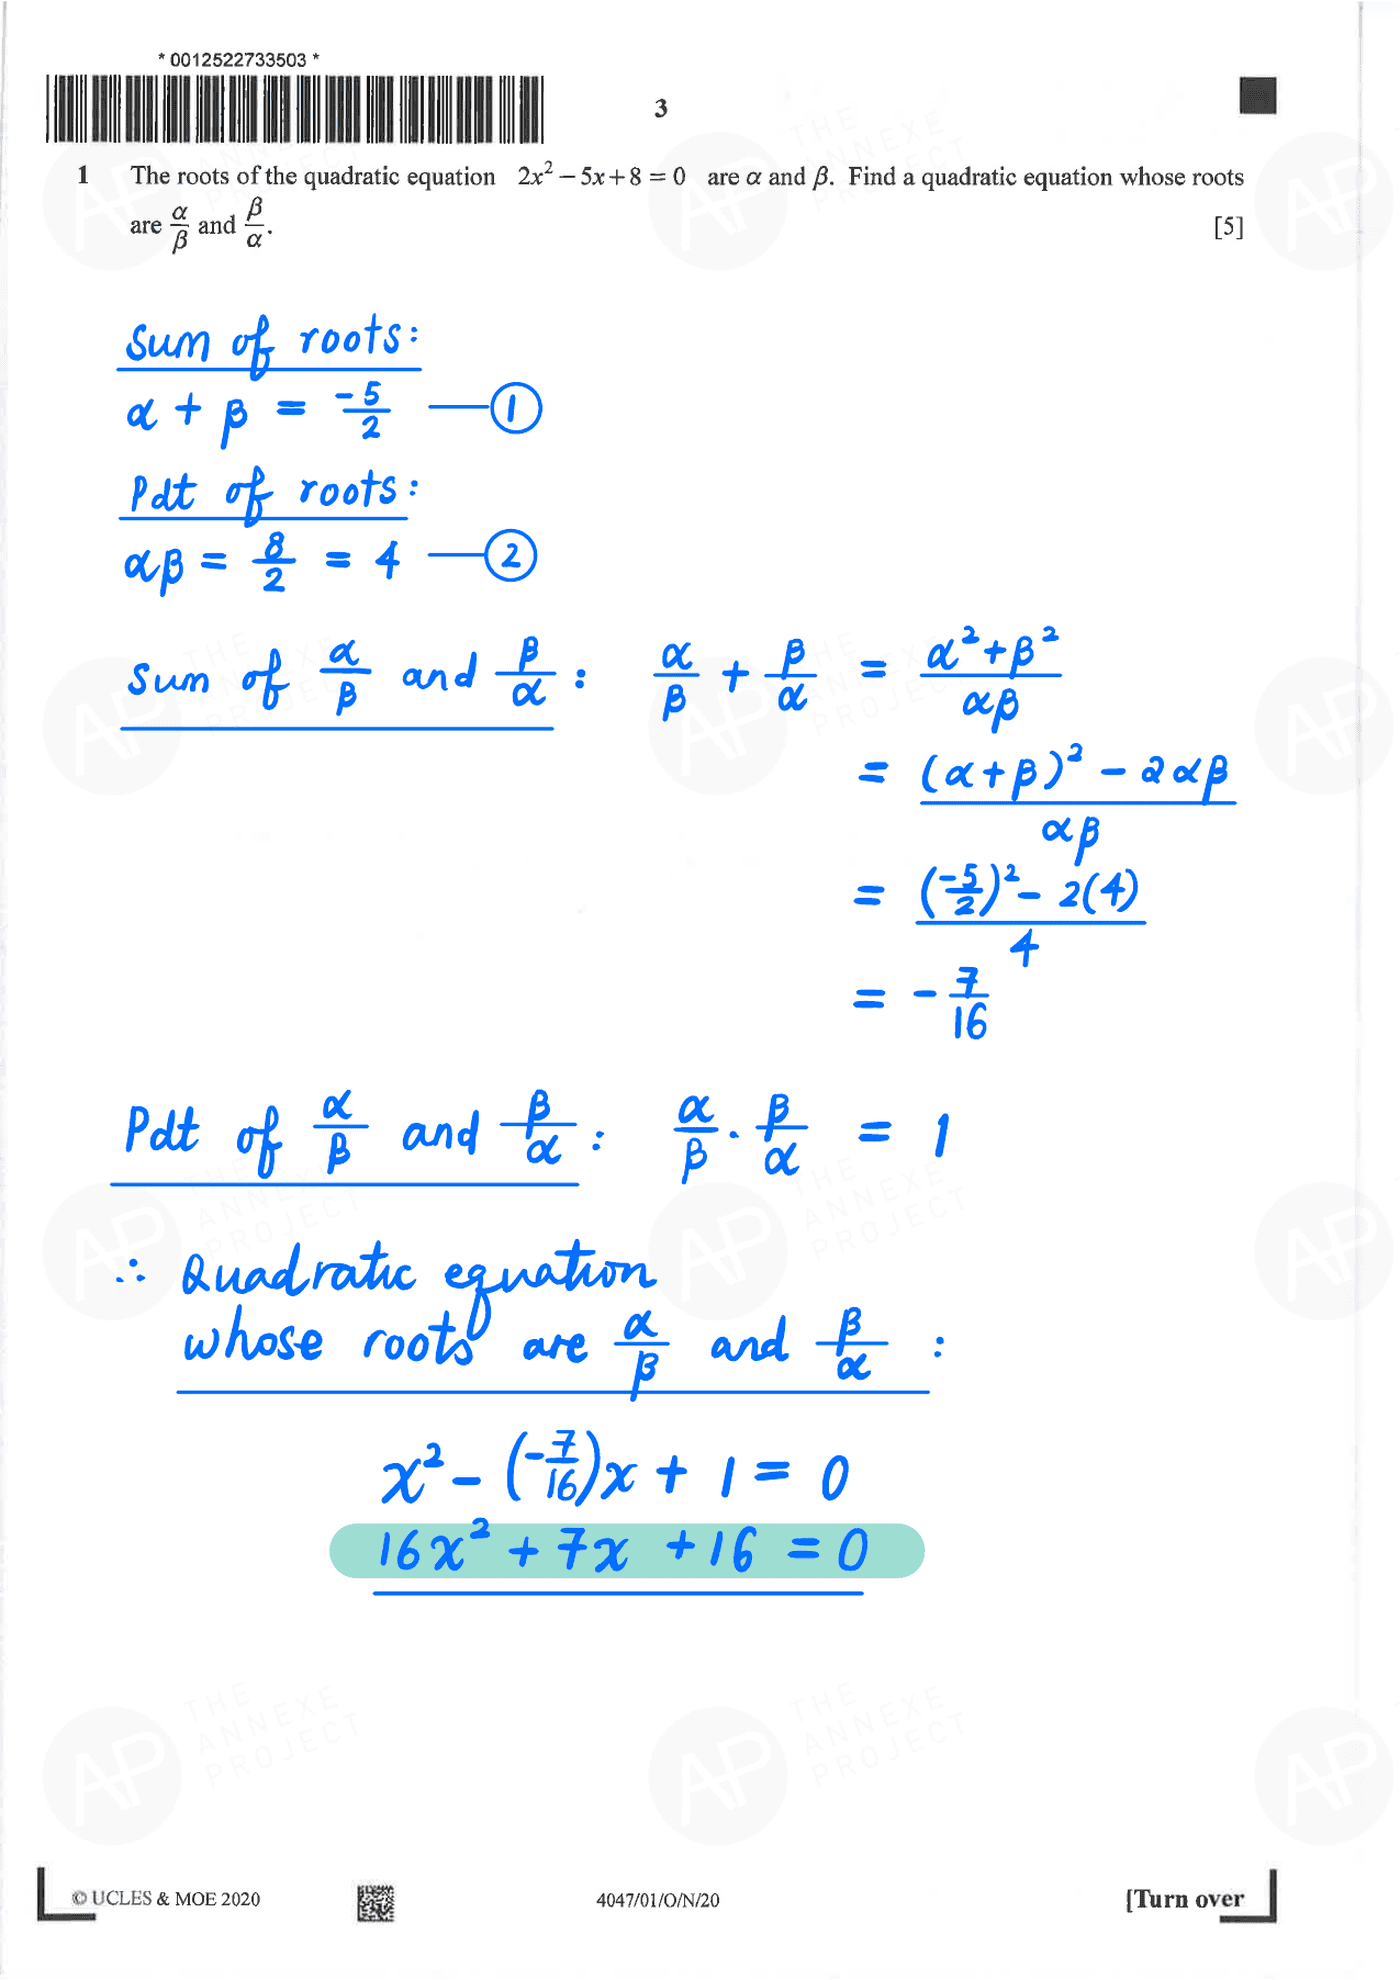 * 0012522733503 *
3
1 The roots of the quadratic equation 2x² − 5x + 8 = 0 are α and β. Find a quadratic equation whose roots
are α/β and β/α. [5]
Sum of roots:
α + β = -5/2 —①
Pdt of roots:
αβ = 8/2 = 4 —②
Sum of α/β and β/α : α/β + β/α = (α² + β²)/αβ
= ((α+β)² − 2αβ)/αβ
= ((-5/2)² − 2(4))/4
= − 7/16
Pdt of α/β and β/α : α/β · β/α = 1
∴ Quadratic equation
whose roots are α/β and β/α :
x² − (−7/16)x + 1 = 0
16x² + 7x + 16 = 0
© UCLES & MOE 2020 4047/01/O/N/20 [Turn over
AP THE ANNEXE PROJECT